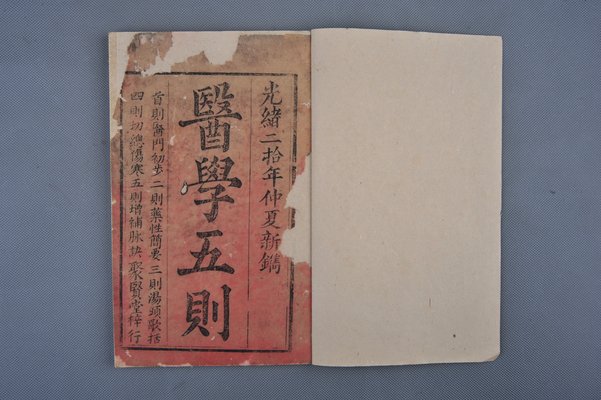 光緒二拾年仲夏新鐫
醫學五則
首則醫門初步二則藥性簡要三則湯頭歌括
四則切總傷寒五則增補脉訣聚賢堂梓行